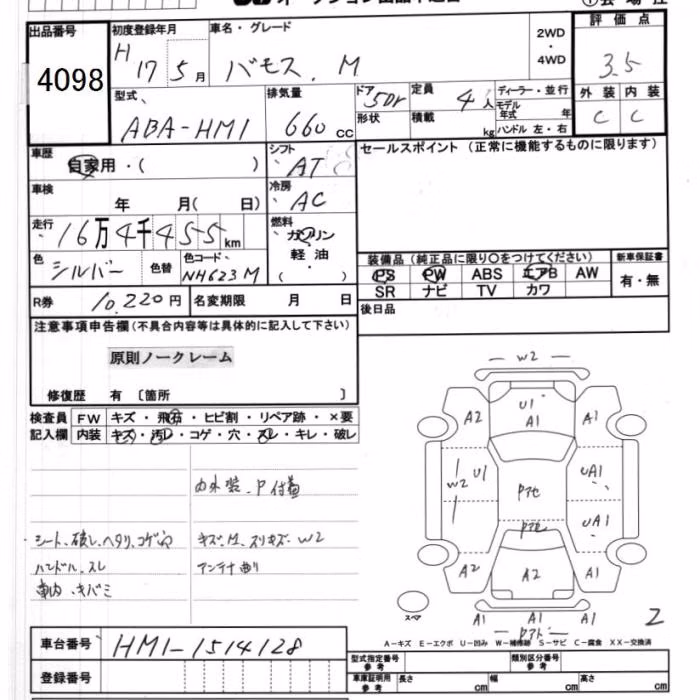 出品番号
4098
初度登録年月
H 17 5月
車名・グレード
バモス. M
2WD
・
4WD
評価点
3.5
外装 内装
C C
型式
ABA-HM1
排気量
660 cc
ドア
5Dr
形状
定員
4人
積載
kg
ディーラー・並行
モデル年式 年
ハンドル 左・右
車歴
自家用・( )
シフト
AT
セールスポイント(正常に機能するものに限ります)
車検
年 月( 日)
冷房
AC
走行
16万4千455km
燃料
ガソリン
軽油
( )
色
シルバー
色替
色コード
NH623M
装備品(純正品に限り○をつけてください)
新車保証書
PS PW ABS エアB AW
SR ナビ TV カワ
有・無
R券
10,220円
名変期限 月 日
後日品
注意事項申告欄(不具合内容等は具体的に記入して下さい)
原則ノークレーム
修復歴 有〔箇所 〕
検査員記入欄
FW キズ・飛石・ヒビ割・リペア跡・×要
内装 キズ・汚レ・コゲ・穴・スレ・キレ・破レ
内外装、P付着
シート、破レ、ヘタリ、コゲ穴
キズ、凹、スリキズ、W2
ハンドル、スレ
アンテナ曲り
車内、キバミ
W2
U1
A2 A1 A1
W2 U1 Pアセ UA1
Pアセ UA1
A2 A2 A1
スペア
A1 A1 A1
Pアト
2
A-キズ E-エクボ U-凹み W-補修跡 S-サビ C-腐食 XX-交換済
車台番号
HM1-1514128
型式指定番号
参考
類別区分番号
参考
登録番号
車庫証明用
参考
長さ cm 幅 cm 高さ cm